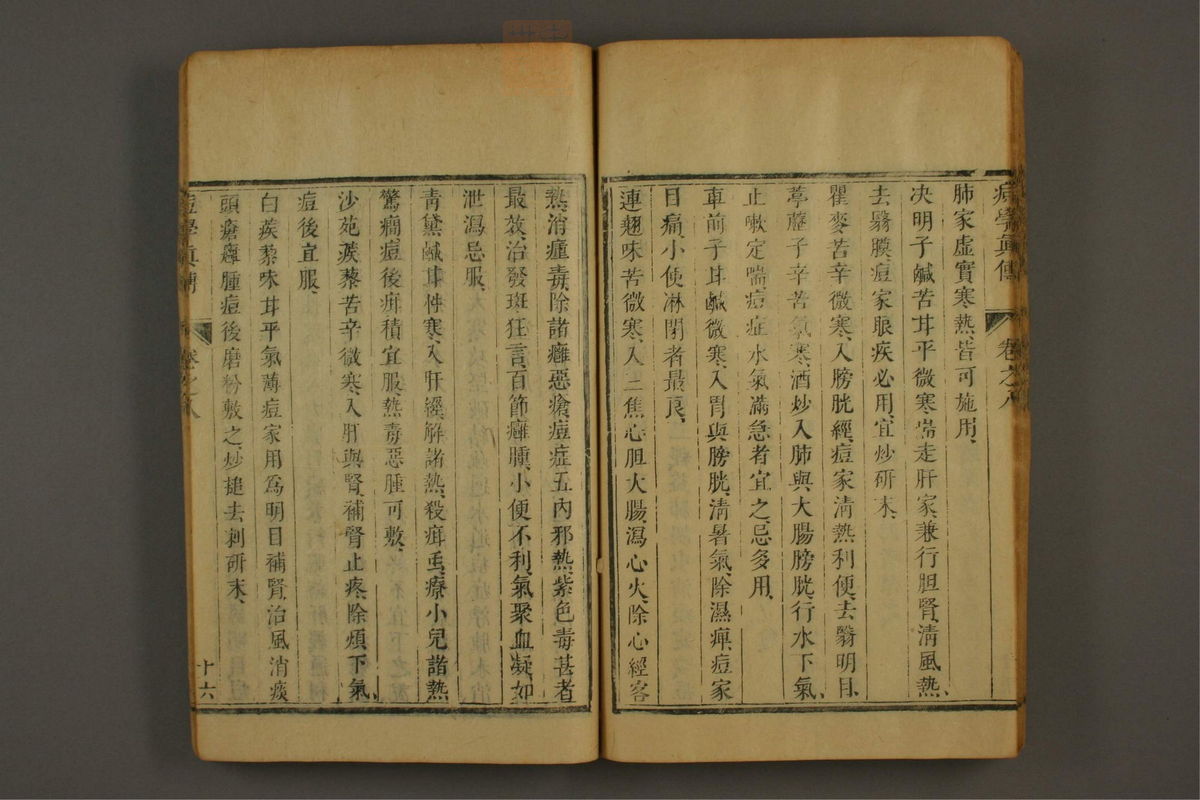 痘學眞傳 卷之八
肺家虛實寒熱、皆可施用、
決明子鹹苦甘平微寒、耑走肝家、兼行胆腎、清風熱、
去翳膜、痘家眼疾必用、宜炒研末、
瞿麥苦辛微寒、入膀胱經、痘家清熱利便、去翳明目、
葶藶子辛苦氣寒、酒炒入肺與大腸膀胱、行水下氣、
止嗽定喘、痘症水氣滿急者宜之、忌多用、
車前子甘鹹微寒、入胃與膀胱、清暑氣、除濕痺、痘家
目痛、小便淋閉者最良、
連翹味苦微寒、入三焦心胆大腸、瀉心火、除心經客
熱、消瘇毒、除諸癰惡瘡、痘症五內邪熱、紫色毒甚者
最效、治發斑狂言、百節癰腫、小便不利、氣聚血凝、如
泄瀉忌服、
青黛鹹甘性寒、入肝經、解諸熱、殺疳䖝、療小兒諸熱
驚癎、痘後疳積宜服、熱毒惡腫可敷、
沙苑蒺藜苦辛微寒、入肝與腎、補腎止疼、除煩下氣
痘後宜服、
白蒺藜味甘平氣薄、痘家用爲明目補腎、治風消痰
頭瘡癰腫、痘後磨粉敷之、炒搥去刺研末、
痘學眞傳 卷之八 十六